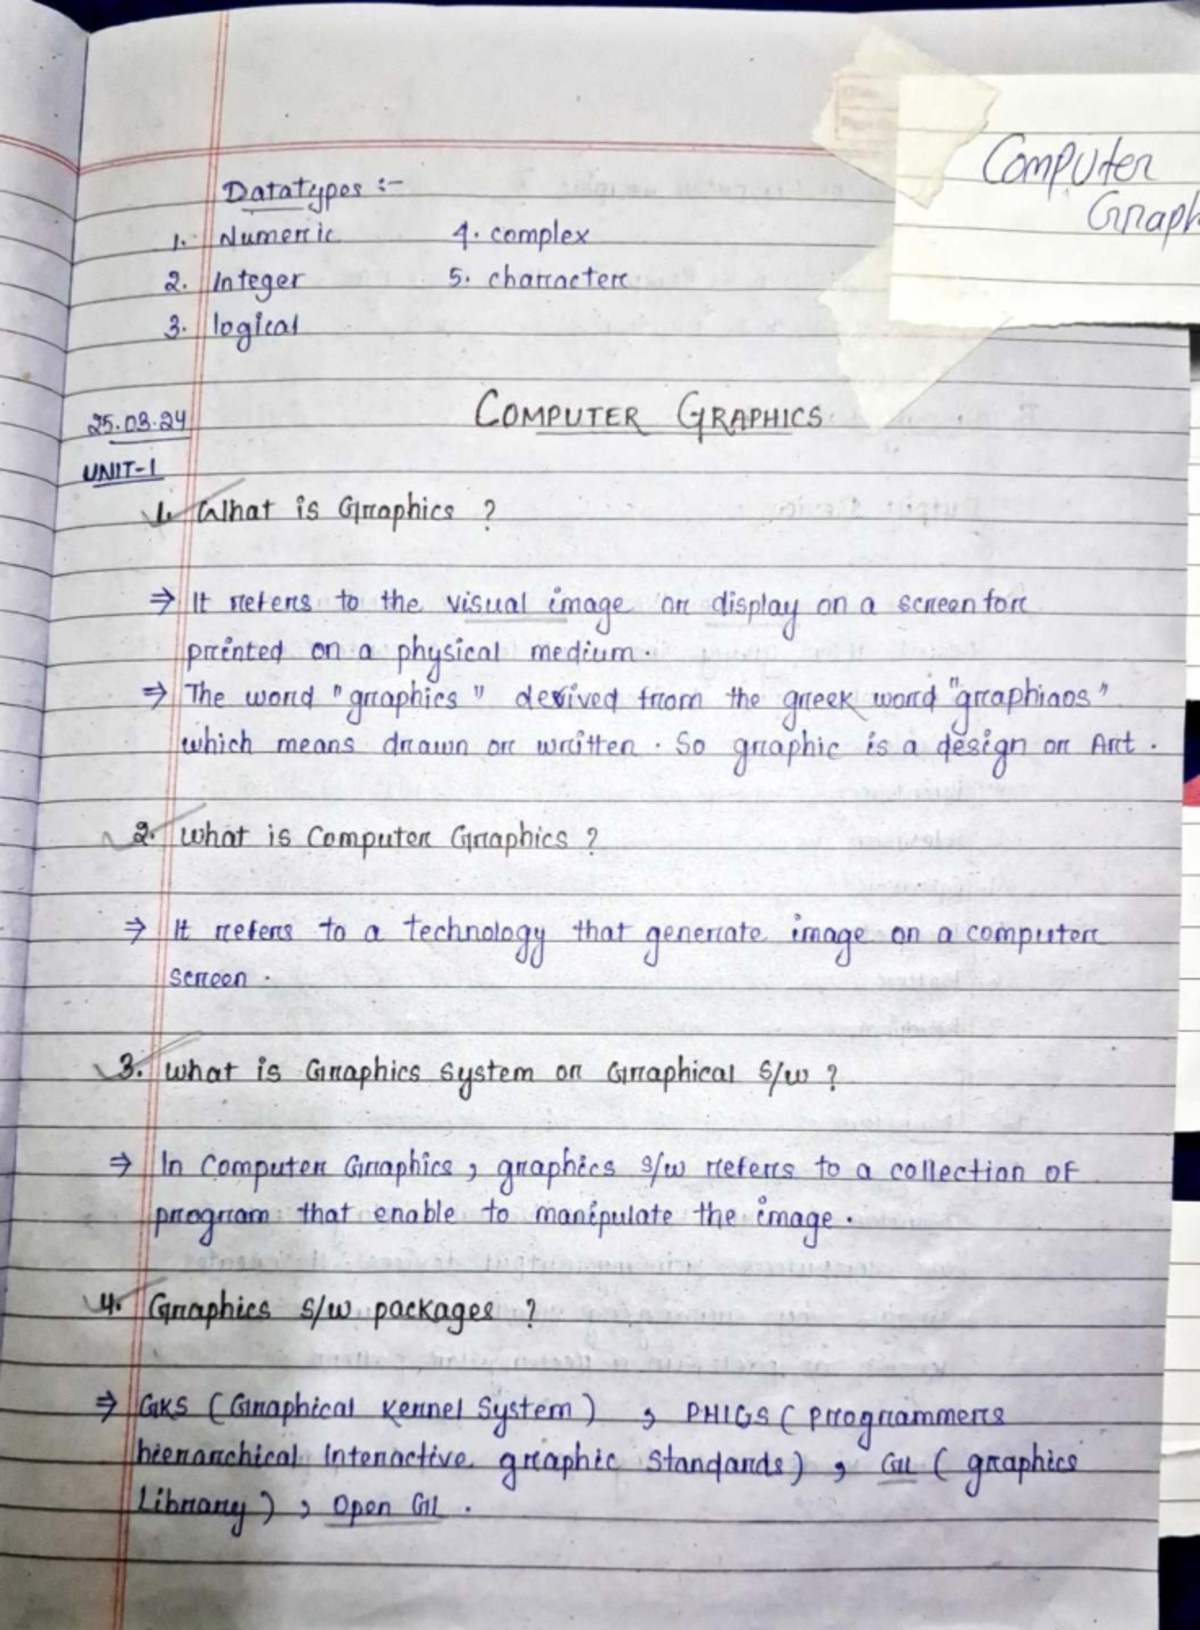 Computer
Graph
Datatypes :-
1. Numeric 4. complex
2. Integer 5. character
3. logical
25.03.24 COMPUTER GRAPHICS
UNIT-1
1. What is Graphics ?
⇒ It refers to the visual image or display on a screen for
printed on a physical medium.
⇒ The word "graphics" derived from the greek word "graphiaos"
which means drawn or written. So graphic is a design or Art.
2. What is Computer Graphics ?
⇒ It refers to a technology that generate image on a computer
screen.
3. What is Graphics system or Graphical S/w ?
⇒ In Computer Graphics, graphics s/w refers to a collection of
program that enable to manipulate the image.
4. Graphics s/w packages ?
⇒ GKS (Graphical Kernel System), PHIGS (Programmers
hierarchical Interactive graphic Standards), GL (graphics
Library), Open GL.